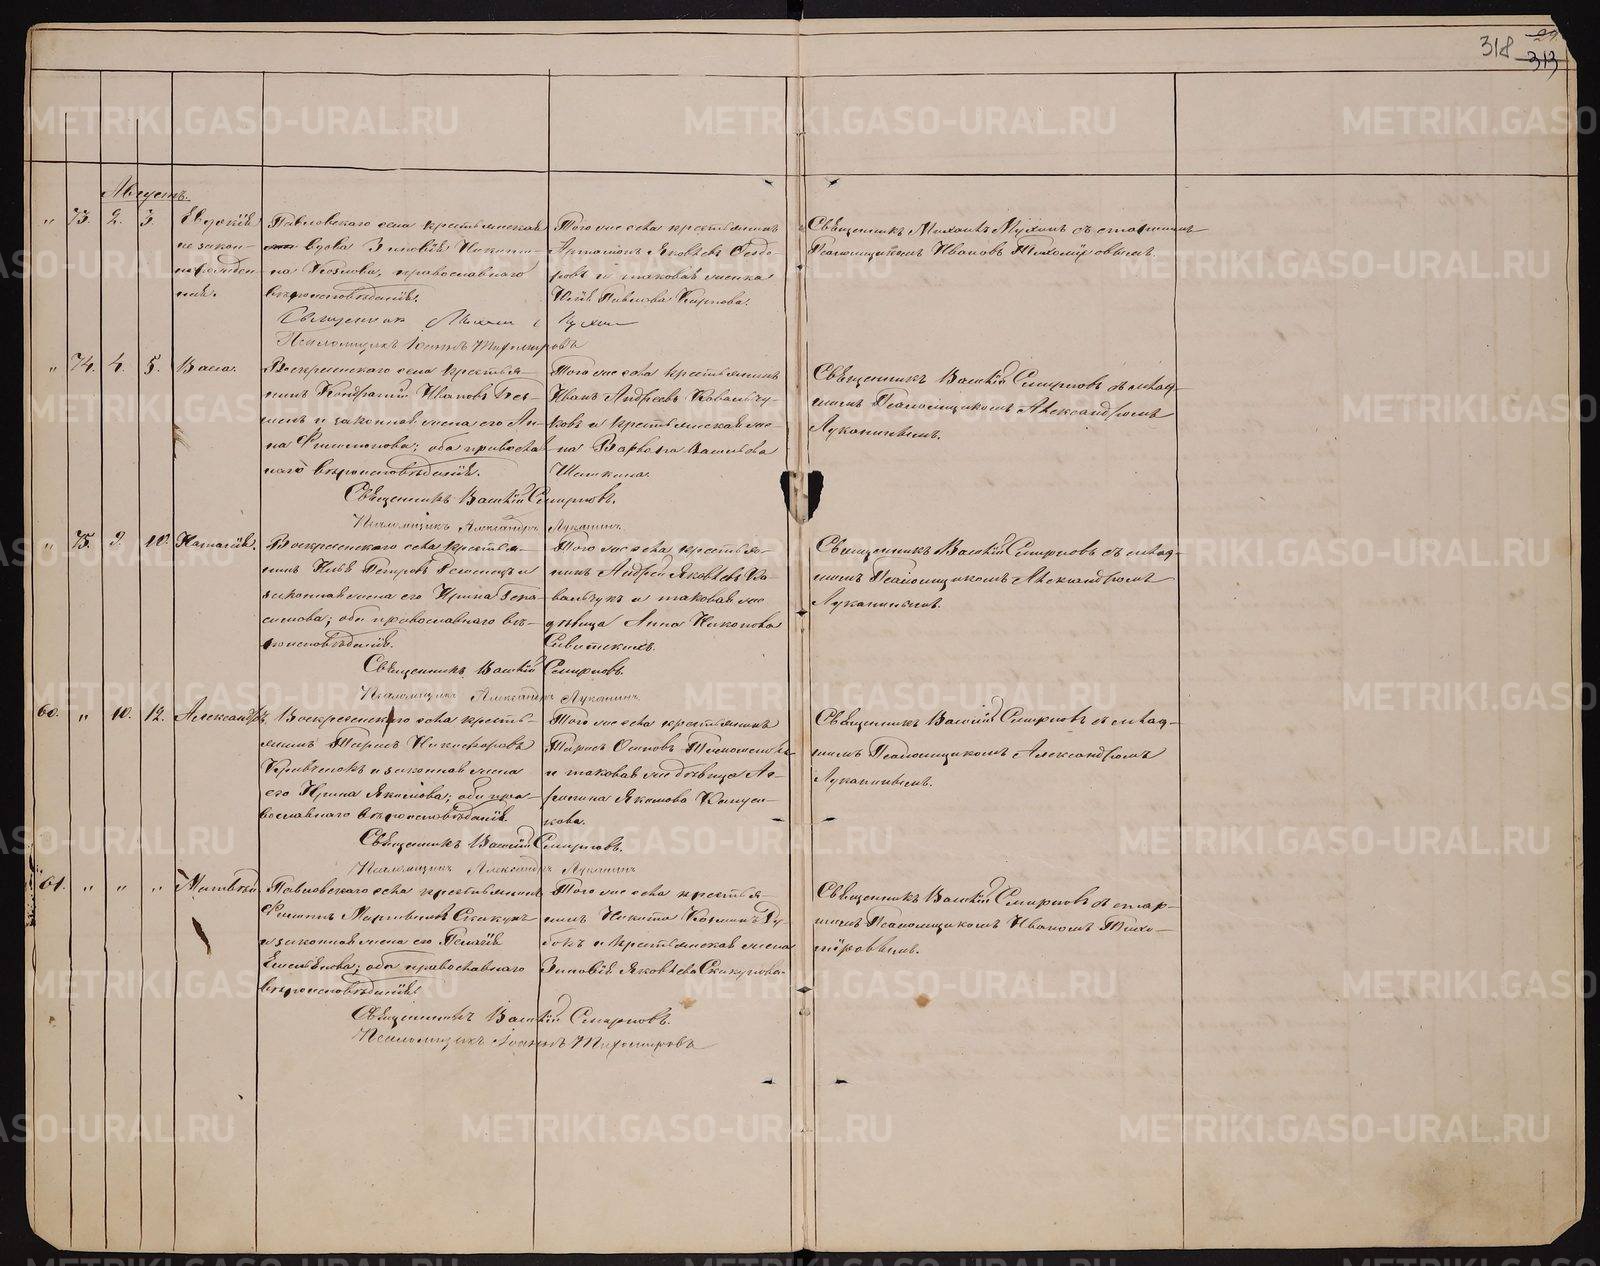 318
29.
313
Августъ.
„ 73. 2. 3. Евдокія
незакон-
норожден-
ная.
Павловскаго села крестьянская
вдова Зиновія Никити-
на Козлова, православнаго
вѣроисповѣданія.
Священник Михаил Мухин
Псаломщикъ Іоаннъ Тихомировъ
Того же села крестьянинъ
Артамонъ Яковлевъ
и таковая женка
Павлова Карпова.
Священникъ Михаилъ Мухинъ съ старшимъ
Псаломщикомъ Иваномъ Тихоміровымъ.
„ 74. 4. 5. Васса.
Воскресенскаго села крестья-
нинъ Кондратій Ивановъ
и законная жена его Ан-
на Филимонова; оба православ-
наго вѣроисповѣданія.
Священникъ Василій Смирновъ.
Псаломщикъ Александръ Луканинъ.
Того же села крестьянинъ
Иванъ Андреевъ Ковальчу-
ковъ и крестьянская же-
на Варвара Васильева
Шишкина.
Священникъ Василій Смирновъ съ млад-
шимъ Псаломщикомъ Александромъ
Луканинымъ.
„ 75. 9. 10. Наталія.
Воскресенскаго села крестья-
нинъ Илья Петровъ и
законная жена его Ирина Гера-
симова; оба православнаго вѣ-
роисповѣданія.
Священникъ Василій Смирновъ.
Псаломщикъ Александръ Луканинъ.
Того же села крестья-
нинъ Андрей Яковлевъ Ко-
вальчукъ и таковая же
дѣвица Анна Никонова
Священникъ Василій Смирновъ съ млад-
шимъ Псаломщикомъ Александромъ
Луканинымъ.
60. „ 10. 12. Александръ.
Воскресенскаго села кресть-
янинъ Тарасъ Никифоровъ
и законная жена
его Ирина Якимова; оба пра-
вославнаго вѣроисповѣданія.
Священникъ Василій Смирновъ.
Псаломщикъ Александръ Луканинъ.
Того же села крестьянинъ
Тарасъ Осиповъ
и таковая же дѣвица Аг-
рипина Якимова
Священникъ Василій Смирновъ съ млад-
шимъ Псаломщикомъ Александромъ
Луканинымъ.
61. „ „ „ Матвѣй.
Павловскаго села крестьянинъ
Филиппъ Скакунъ
и законная жена его Пелагія
Емельянова; оба православнаго
вѣроисповѣданія.
Священникъ Василій Смирновъ.
Псаломщикъ Іоаннъ Тихомировъ
Того же села крестья-
нинъ Никита Козминъ Ру-
бокъ и крестьянская жена
Зиновія Яковлева Скакунова.
Священникъ Василій Смирновъ съ стар-
шимъ Псаломщикомъ Иваномъ Тихо-
міровымъ.
METRIKI.GASO-URAL.RU